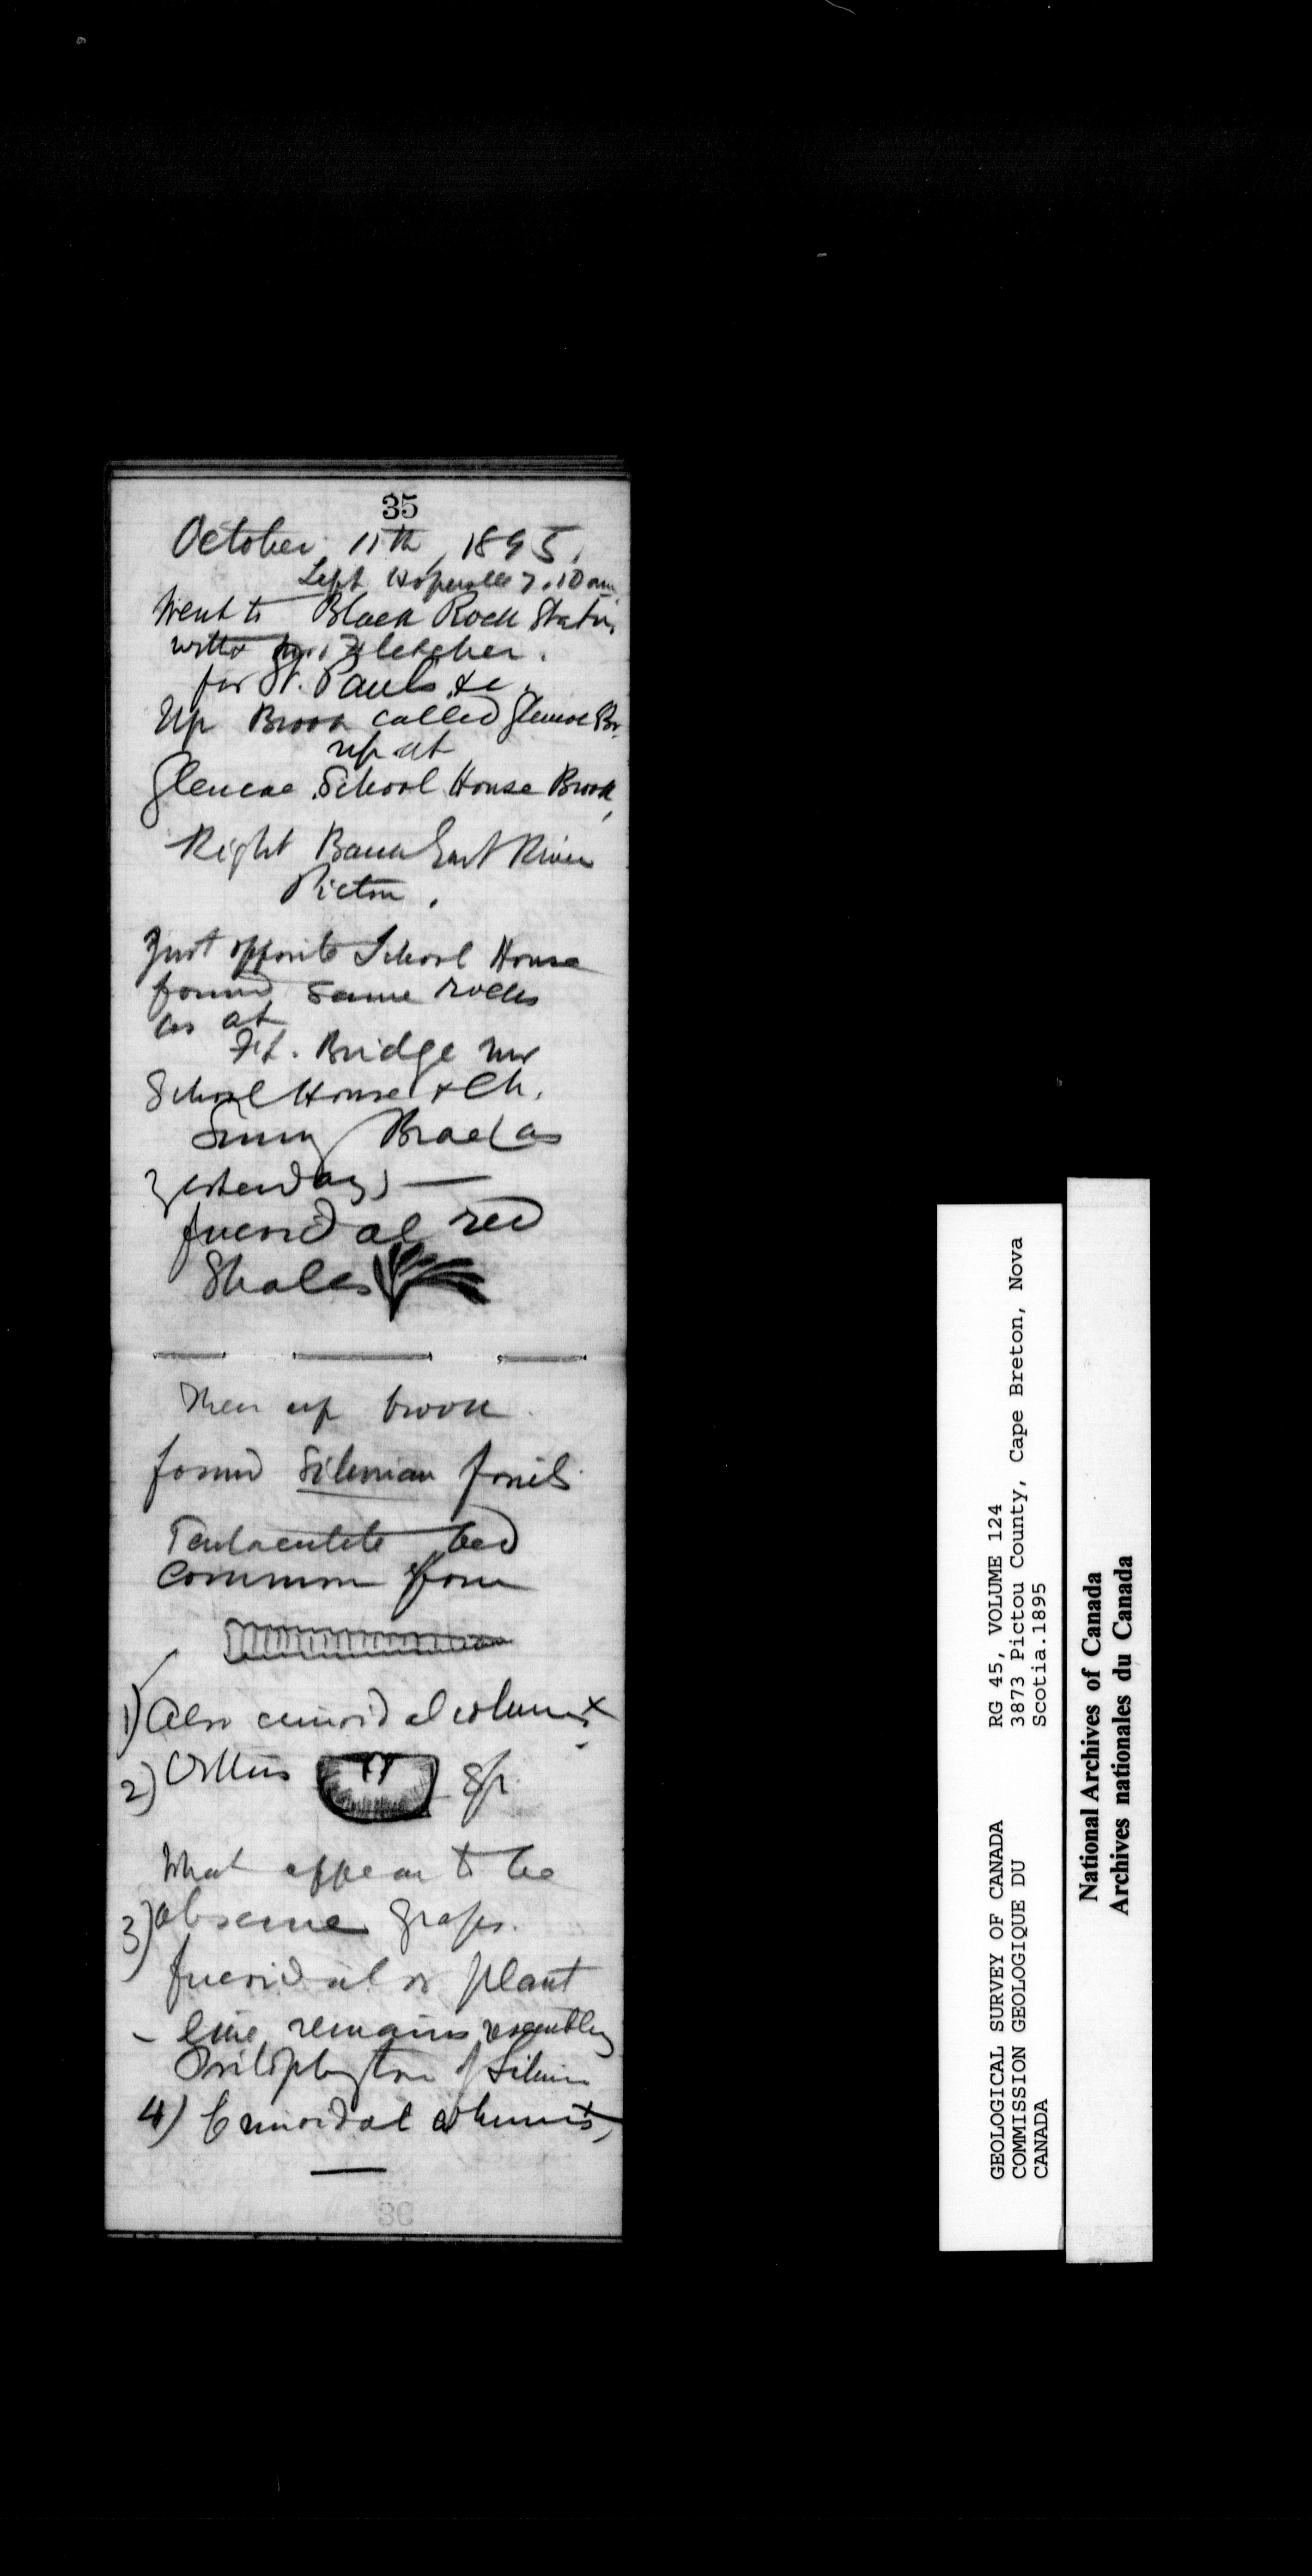 35
October 11th, 1895.
Left Hopewell 7.10 am
Went to Black Rock Statn.
with Mr. Fletcher.
for St. Pauls &c.
Up Brook called Glencoe Br.
up at
Glencoe School House Brook,
Right Bank East River
Pictou.
Just opposite School House
found same rocks
as at
Ft. Bridge nr
School House & Ch.
Sunny Brae (as
yesterday) —
fucoidal red
Shales
Then up brook
found Silurian fossils
Tentaculite bed
Common form
1) Also crinoidal columns
2) Orthis sp.
What appear to be
3) obscure graps.
fucoidal or plant
- like remains resembling
Psilophyton of Silurn
4) Crinoidal columns,
36
GEOLOGICAL SURVEY OF CANADA
COMMISSION GEOLOGIQUE DU
CANADA
RG 45, VOLUME 124
3873 Pictou County, Cape Breton, Nova
Scotia.1895
National Archives of Canada
Archives nationales du Canada